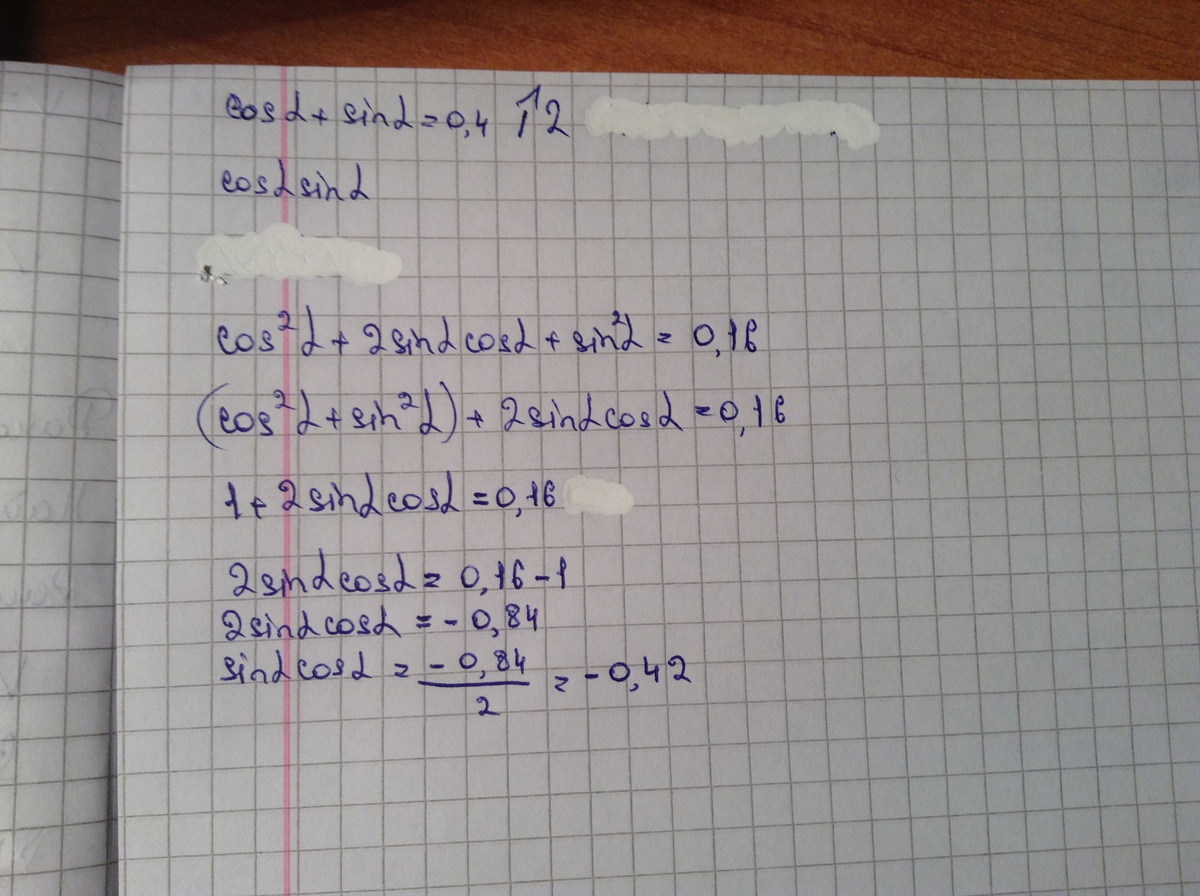 cosα + sinα = 0,4 ↑2
cosα sinα
cos²α + 2sinα cosα + sin²α = 0,16
(cos²α + sin²α) + 2sinα cosα = 0,16
1 + 2sinα cosα = 0,16
2sinα cosα = 0,16 - 1
2sinα cosα = - 0,84
sinα cosα = - 0,84 / 2 = - 0,42